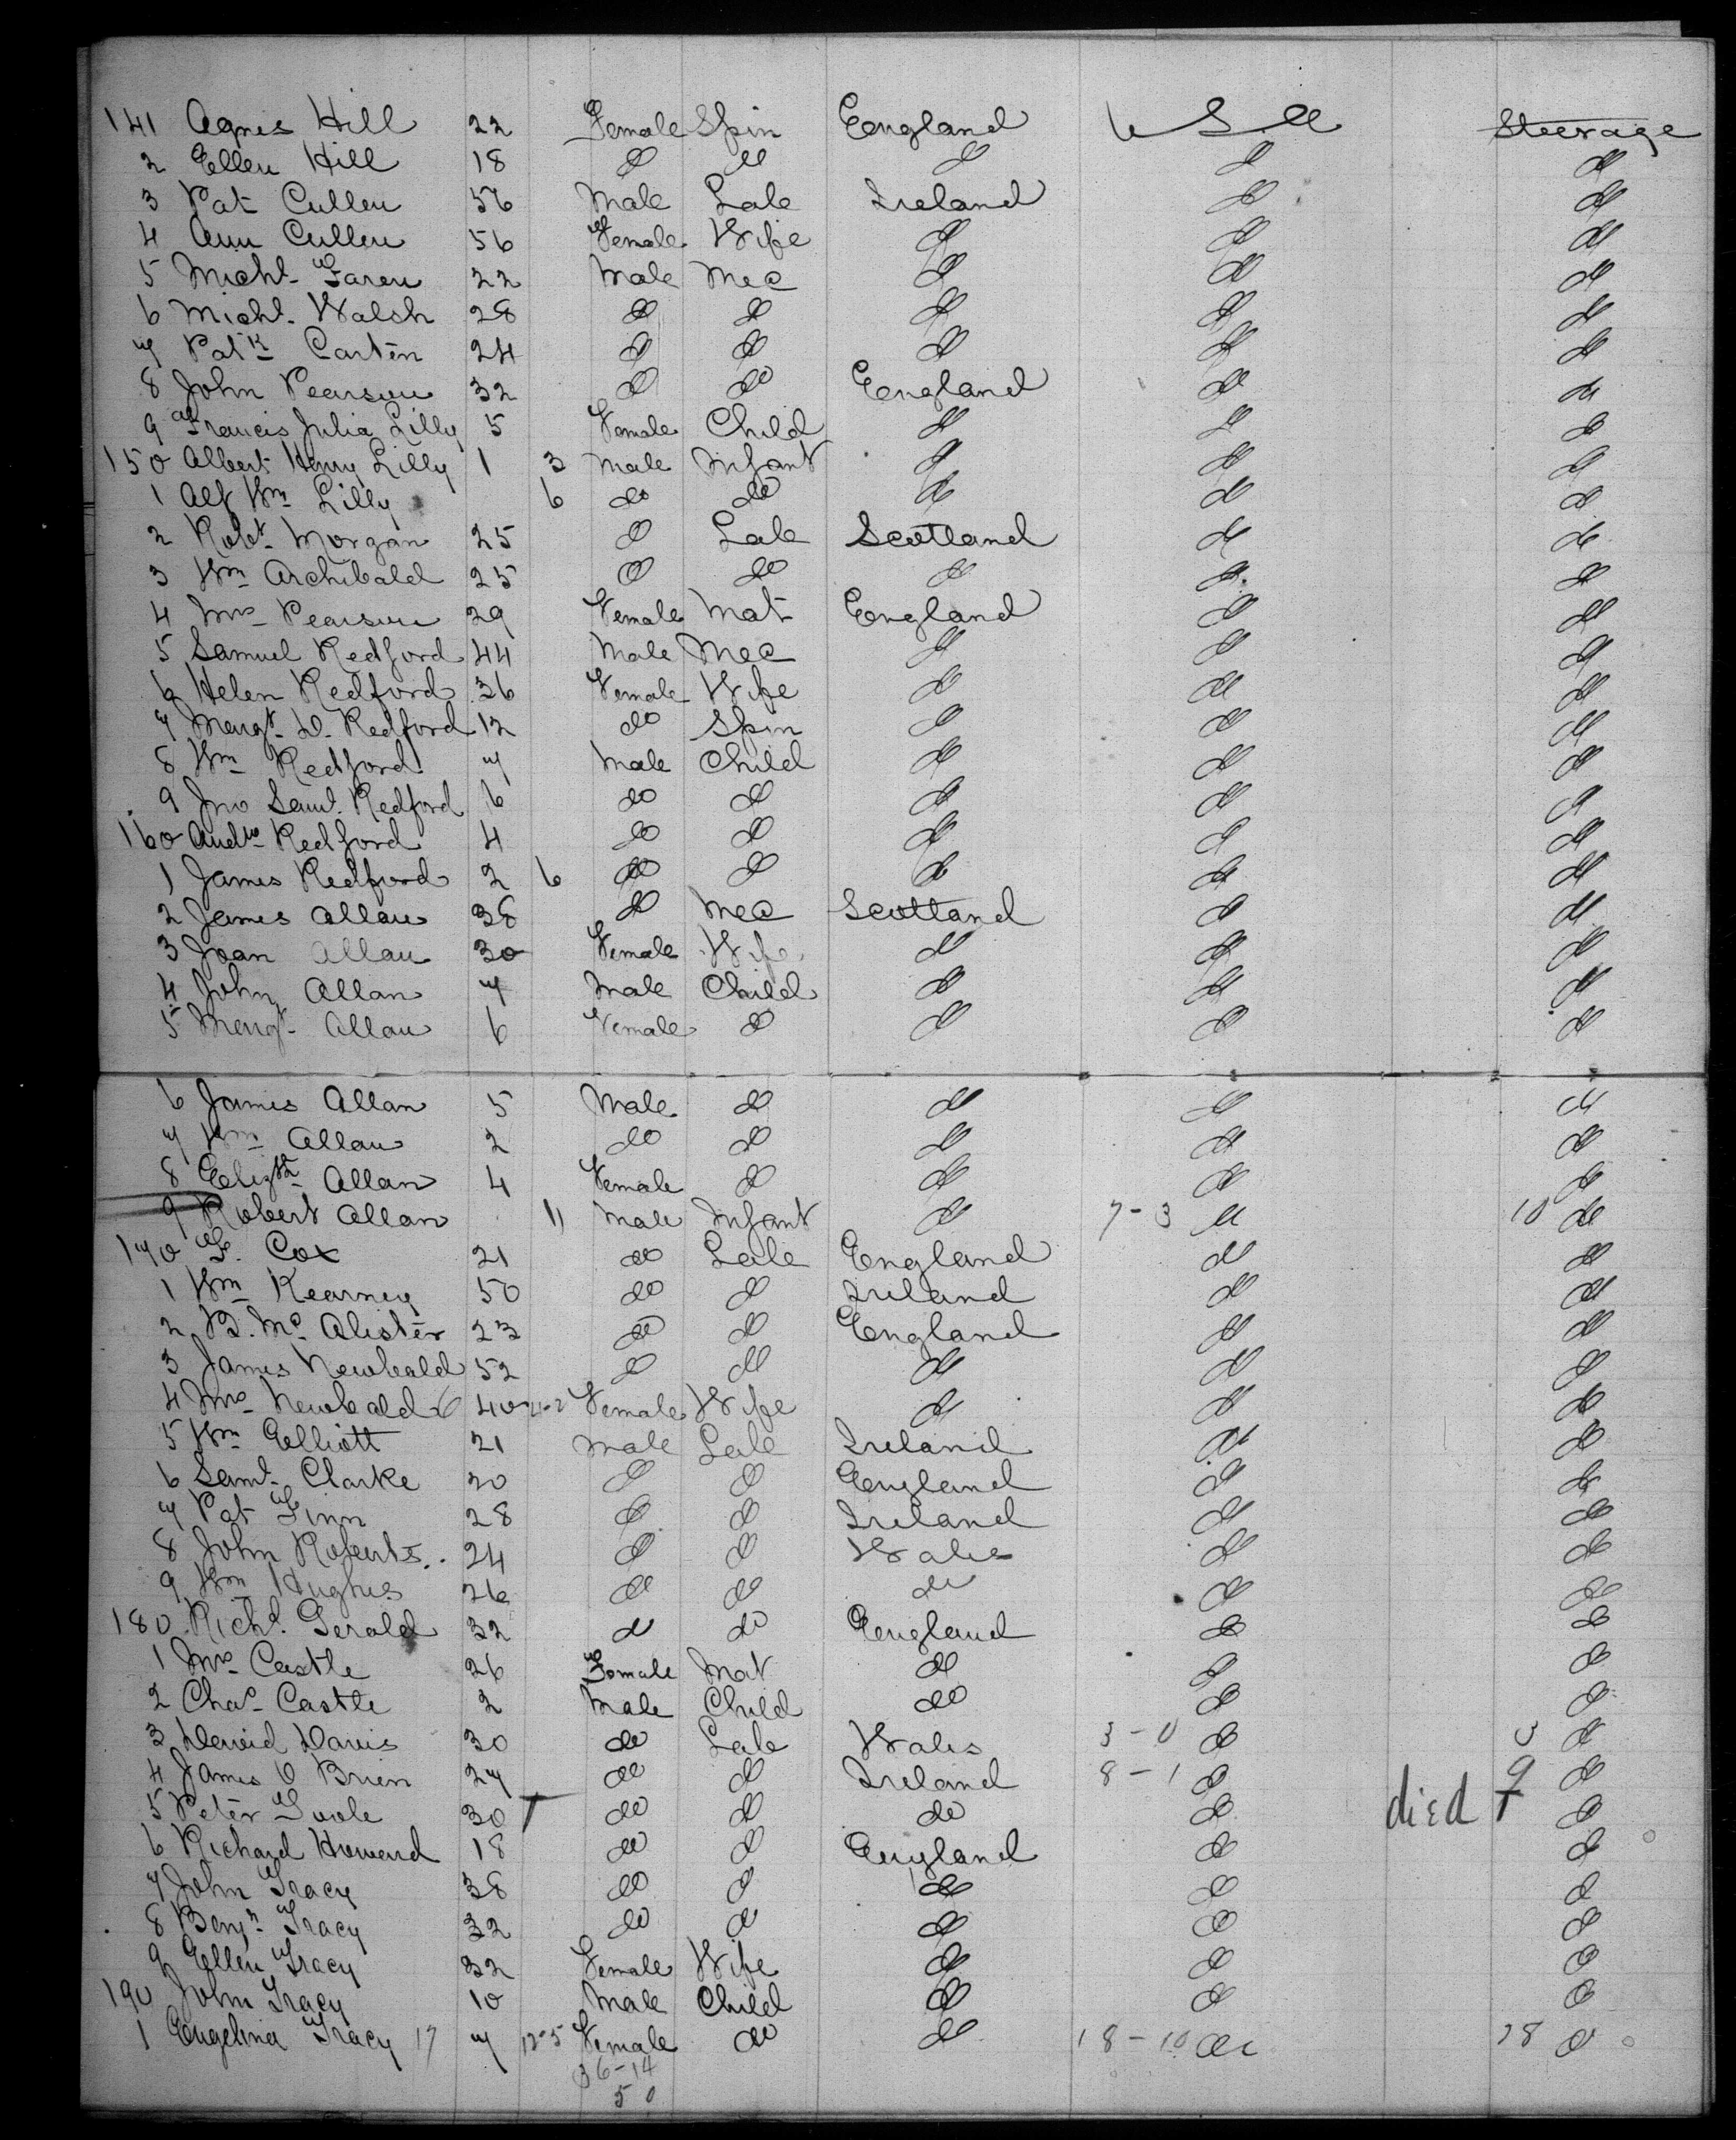 141 Agnes Hill 22 Female Spin England U S A Steerage
2 Ellen Hill 18 do do do do do
3 Pat Cullen 56 Male Lab Ireland do do
4 Ann Cullen 56 Female Wife do do do
5 Michl. Faren 22 Male Mec do do do
6 Michl. Walsh 28 do do do do do
7 Patk Carten 24 do do do do do
8 John Pearson 32 do do England do do
9 Francis Julia Lilly 5 Female Child do do do
150 Albert Henry Lilly 1 3 Male Infant do do do
1 Alf Wm Lilly 6 do do do do do
2 Robt. Morgan 25 do Lab Scotland do do
3 Wm Archibald 25 do do do do do
4 Mrs Pearson 29 Female Mat England do do
5 Samuel Redford 44 Male Mec do do do
6 Helen Redford 36 Female Wife do do do
7 Margt. D. Redford 12 do Spin do do do
8 Wm Redford 7 Male Child do do do
9 Jno Saml. Redford 6 do do do do do
160 Andw Redford 4 do do do do do
1 James Redford 2 6 do do do do do
2 James Allan 38 do Mec Scotland do do
3 Joan Allan 30 Female Wife do do do
4 John Allan 7 Male Child do do do
5 Margt. Allan 6 Female do do do do
6 James Allan 5 Male do do do do
7 Wm Allan 2 do do do do do
8 Elizth Allan 4 Female do do do do
9 Robert Allan 11 Male Infant do 7-3 do 10 do
170 F. Cox 21 do Lab England do do
1 Wm Kearney 50 do do Ireland do do
2 B. Mc Alister 23 do do England do do
3 James Newbald 52 do do do do do
4 Mrs Newbald 6 40 4-2 Female Wife do do do
5 Wm Elliott 21 Male Lab Ireland do do
6 Saml. Clarke 20 do do England do do
7 Pat Finn 28 do do Ireland do do
8 John Roberts 24 do do Wales do do
9 Wm Hughes 26 do do do do do
180 Richd. Gerald 32 do do England do do
1 Mrs Castle 26 Female Mat do do do
2 Chas Castle 2 Male Child do do do
3 David Davis 30 do Lab Wales 3-0 do 3 do
4 James O Brien 27 do do Ireland 8-1 do 9 do
5 Peter Toole 30 do do do do died do
6 Richard Howard 18 do do England do do
7 John Tracy 38 do do do do do
8 Benjn Tracy 32 do do do do do
9 Ellen Tracy 32 Female Wife do do do
190 John Tracy 10 Male Child do do do
1 Engelina Tracy 17 7 12-5 Female do do 18-10 do 28 do
36-14
50